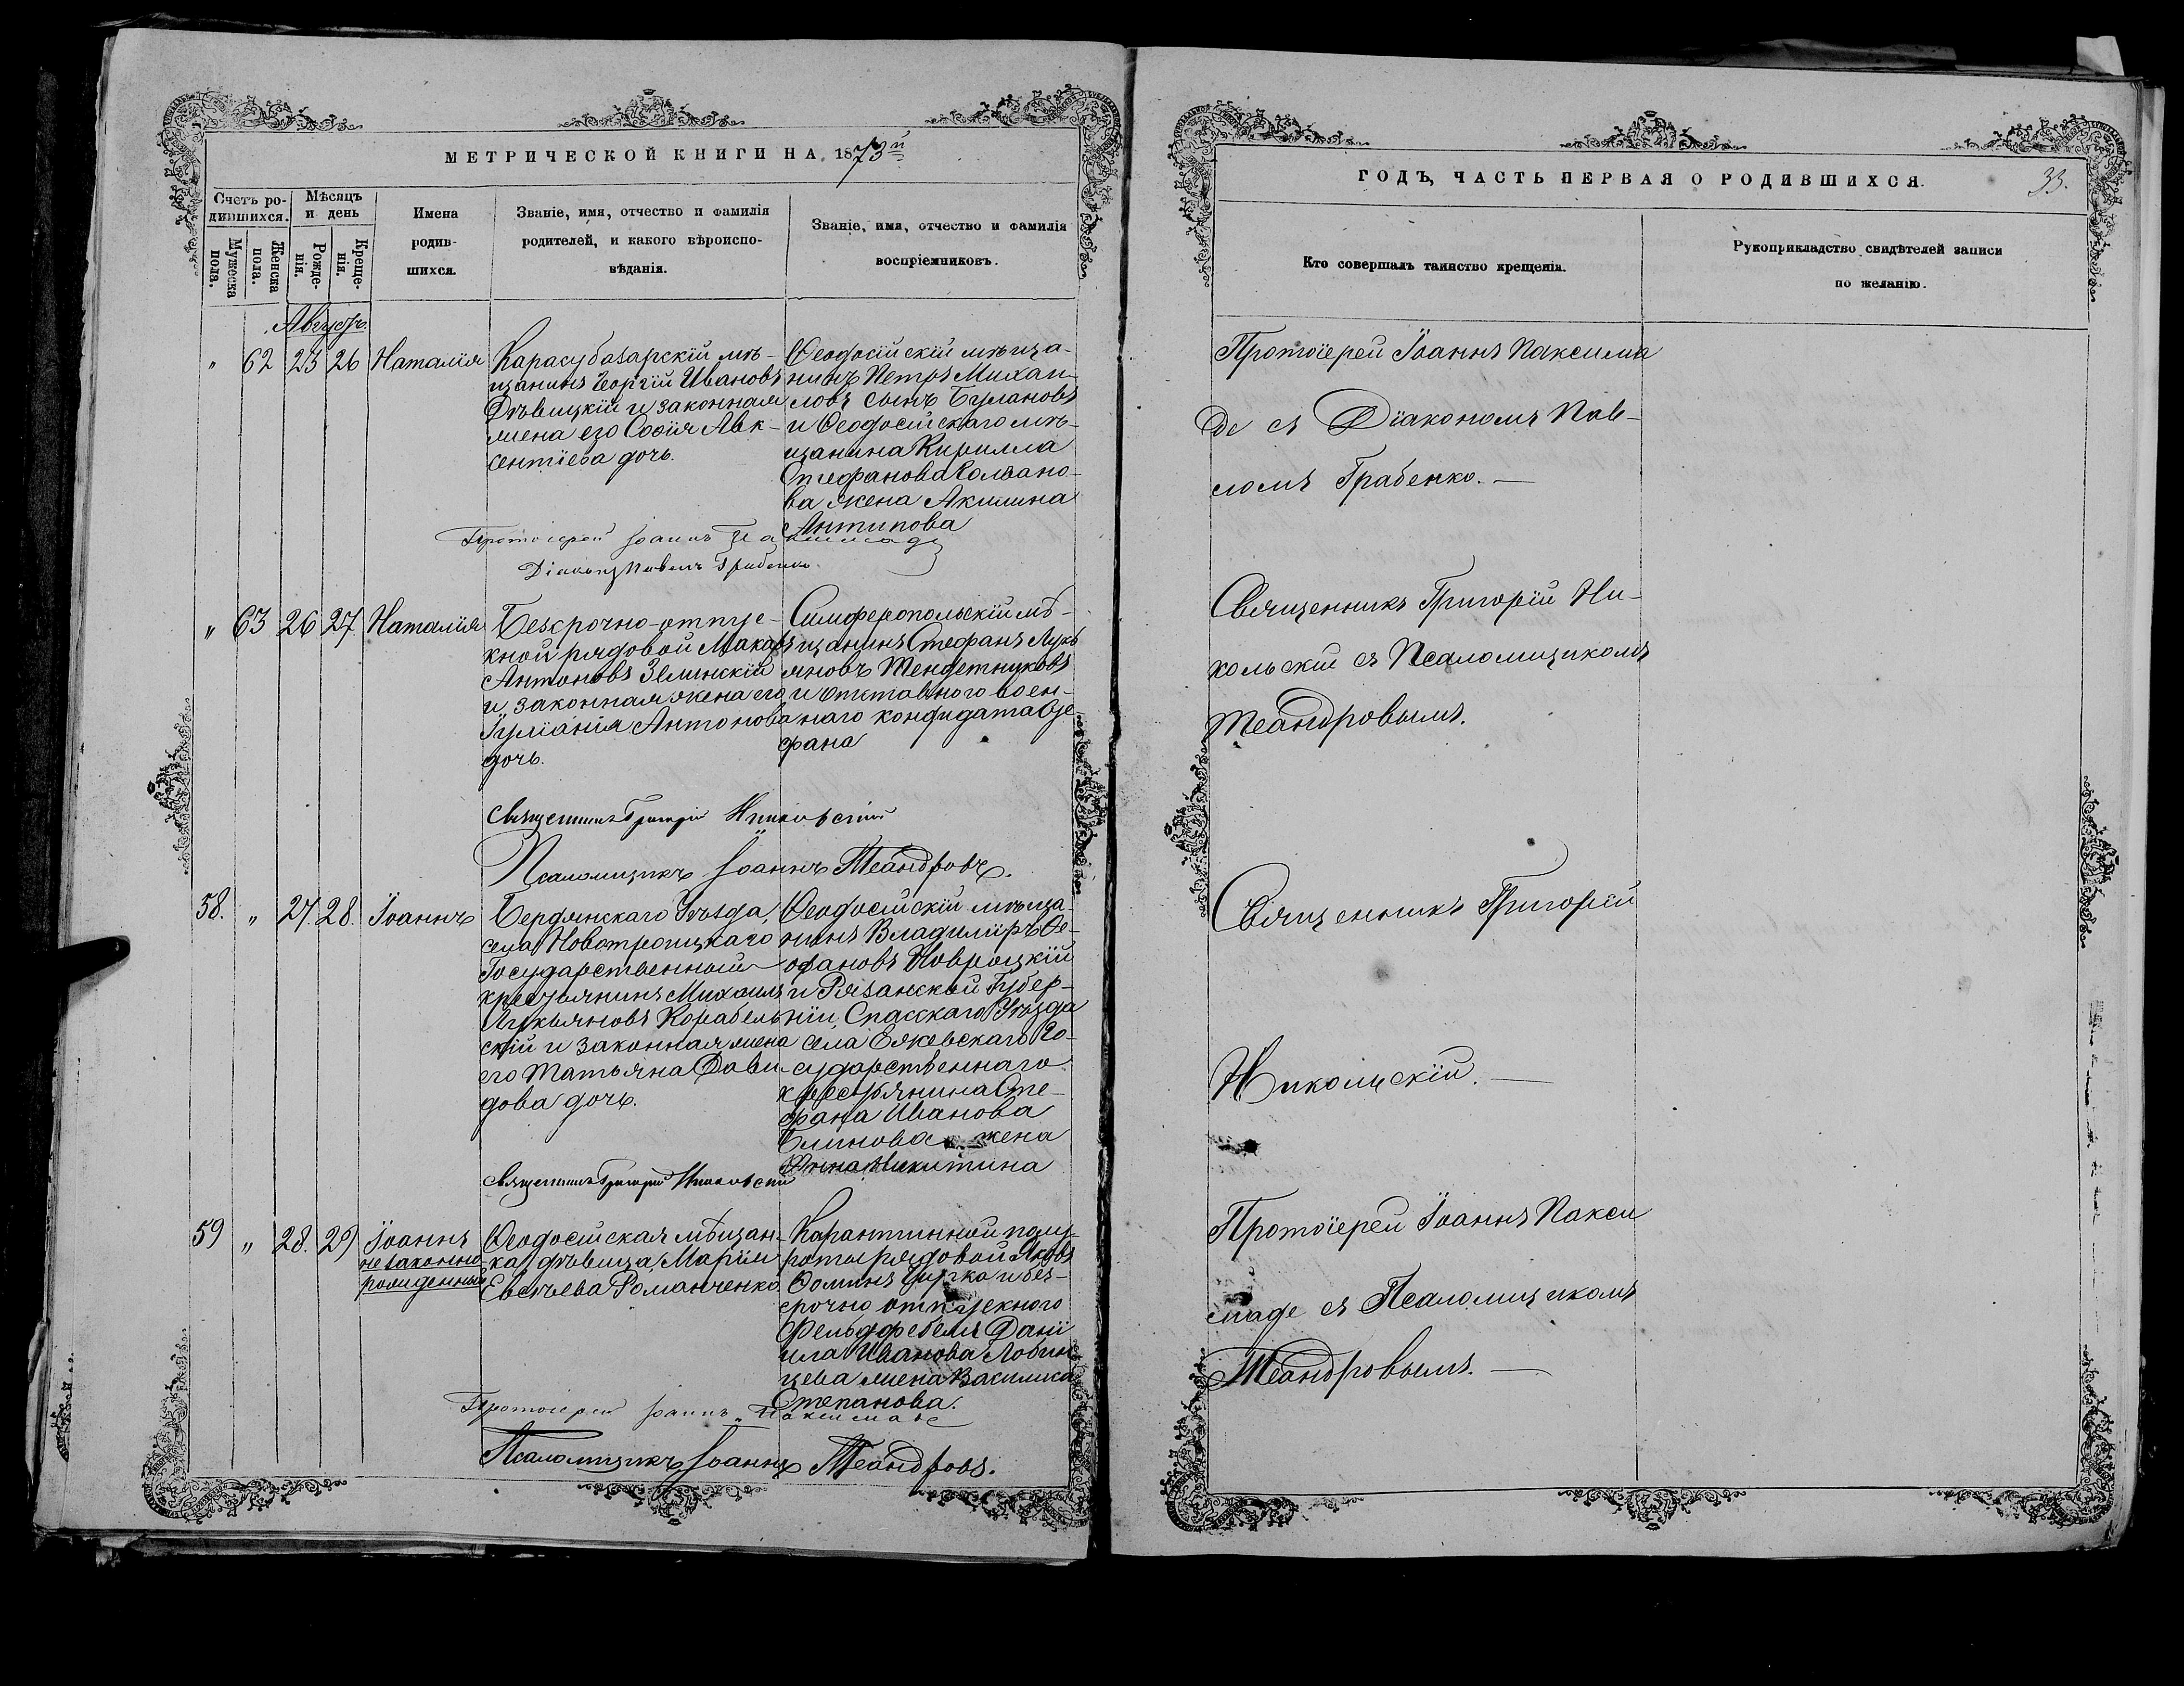 МЕТРИЧЕСКОЙ КНИГИ НА 1873й
Счетъ ро-
дившихся.
Мѣсяцъ
и день
Мужеска
пола.
Женска
пола.
Рожде-
нія.
Креще-
нія.
Имена
родив-
шихся.
Званіе, имя, отчество и фамилія
родителей, и какого вѣроиспо-
вѣданія.
Званіе, имя, отчество и фамилія
воспріемниковъ.
Августъ.
" 62 23 26 Наталія
Карасубазарскій мѣ-
щанинъ Георгій Ивановъ
Дѣвицкій и законная
жена его Софія Авк-
сентіева дочь.
Ѳеодосійскій мѣща-
нинъ Петръ Михаи-
ловъ сынъ Булановъ
и Ѳеодосійскаго мѣ-
щанина Кирилла
Стефанова
ва жена Акилина
Антипова
Протоіерей Іоаннъ Паксимаде
Діаконъ Павелъ Грабенко
" 63 26 27 Наталія
Безсрочно-отпус-
кной рядовой Макаръ
Антоновъ Зелинскій
и законная жена его
Іуліанія Антонова
дочь.
Симферопольскій мѣ-
щанинъ Стефанъ Лукь
яновъ Тендетниковъ
и отставного воен-
наго
фана
Священникъ Григорій Никольскій
Псаломщикъ Іоаннъ Теандровъ.
58. " 27. 28. Іоаннъ
Бердянскаго Уѣзда,
села Новотроицкаго
Государственный
крестьянинъ Михаилъ
Лукьяновъ Корабель
скій и законная жена
его Татьяна Дави-
дова дочь.
Ѳеодосійскій мѣща-
нинъ Владиміръ Ѳе-
офановъ Новроцкій
и Рязанской Губер-
ніи, Спасскаго Уѣзда
села Ежевскаго Го-
сударственнаго
крестьянина Сте-
фана Иванова
Блинова жена
Анна Никитина
Священникъ Григорій Никольскій
59 " 28. 29 Іоаннъ
незаконно
рожденный
Ѳеодосійская мѣщан-
ка, дѣвица, Марія
Евсѣева Романченко
Карантинной полу-
роты рядовой Яковъ
Ѳоминъ Цурка и без-
срочно отпускного
Фельдфебеля Дани
ила Иванова Лобин
цева жена Василиса
Степанова.
Протоіерей Іоаннъ Паксимаде
Псаломщикъ Іоаннъ Теандровъ.
ГОДЪ, ЧАСТЬ ПЕРВАЯ О РОДИВШИХСЯ.
33.
Кто совершалъ таинство крещенія.
Рукоприкладство свидѣтелей записи
по желанію.
Протоіерей Іоаннъ Паксима
де съ Діакономъ Пав-
ломъ Грабенко. —
Священникъ Григорій Ни-
кольскій съ Псаломщикомъ
Теандровымъ.
Священникъ Григорій
Никольскій. —
Протоіерей Іоаннъ Пакси
маде съ Псаломщикомъ
Теандровымъ. —